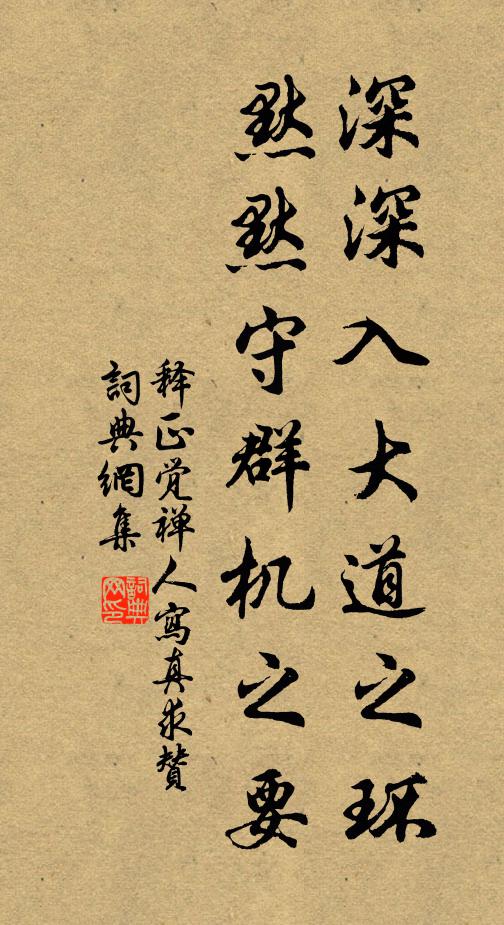 深深入大道之环
默默守群机之要
释正觉禅人寫真求贊
詞典網集
詞典网印